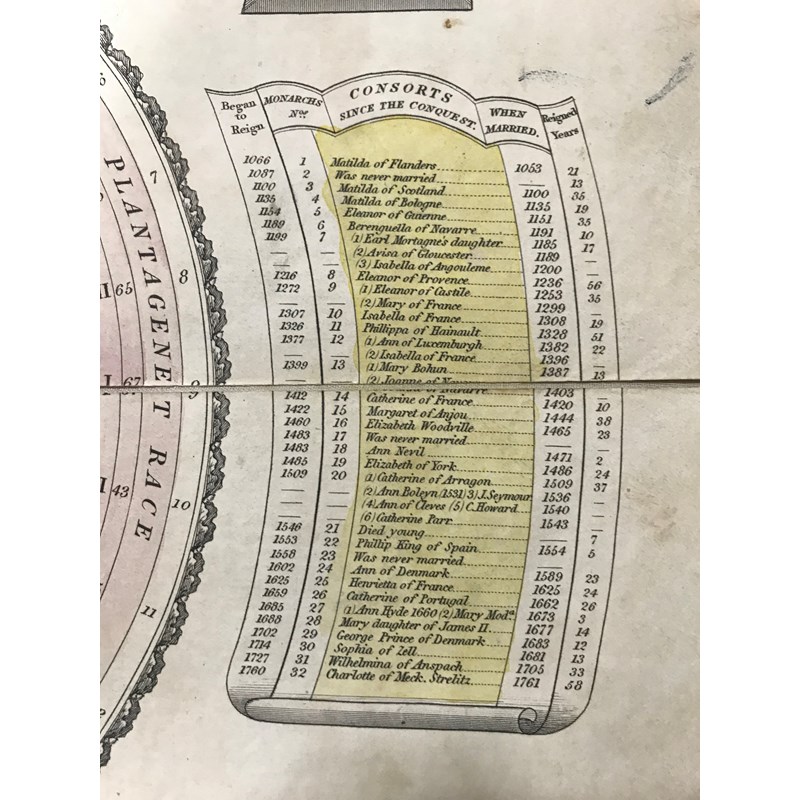 PLANTAGENET RACE
6
7
8
9
10
11
65
67
43
Began to Reign MONARCHS Nos. CONSORTS SINCE THE CONQUEST. WHEN MARRIED. Reigned Years
1066 1 Matilda of Flanders 1053 21
1087 2 Was never married — 13
1100 3 Matilda of Scotland 1100 35
1135 4 Matilda of Bologne 1135 19
1154 5 Eleanor of Guienne 1151 35
1189 6 Berenguella of Navarre 1191 10
1199 7 (1) Earl Mortagne's daughter 1185 17
— — (2) Avisa of Gloucester 1189 —
— — (3) Isabella of Angouleme 1200 —
1216 8 Eleanor of Provence 1236 56
1272 9 (1) Eleanor of Castile 1253 35
— — (2) Mary of France 1299 —
1307 10 Isabella of France 1308 19
1326 11 Phillippa of Hainault 1328 51
1377 12 (1) Ann of Luxemburgh 1382 22
— — (2) Isabella of France 1396 —
1399 13 (1) Mary Bohun 1387 13
— — (2) Joanne of Navarre 1403 —
1412 14 Catherine of France 1420 10
1422 15 Margaret of Anjou 1444 38
1460 16 Elizabeth Woodville 1465 23
1483 17 Was never married — —
1483 18 Ann Nevil 1471 2
1485 19 Elizabeth of York 1486 24
1509 20 (1) Catherine of Arragon 1509 37
— — (2) Ann Boleyn (1531) 3) J. Seymour 1536 —
— — (4) Ann of Cleves (5) C. Howard 1540 —
— — (6) Catherine Parr 1543 —
1546 21 Died young — 7
1553 22 Phillip King of Spain 1554 5
1558 23 Was never married —
1602 24 Ann of Denmark 1589 23
1625 25 Henrietta of France 1625 24
1659 26 Catherine of Portugal 1662 26
1685 27 (1) Ann Hyde 1660 (2) Mary Moda. 1673 3
1688 28 Mary daughter of James II. 1677 14
1702 29 George Prince of Denmark 1683 12
1714 30 Sophia of Zell 1681 13
1727 31 Wilhelmina of Anspach 1705 33
1760 32 Charlotte of Meck. Strelitz 1761 58